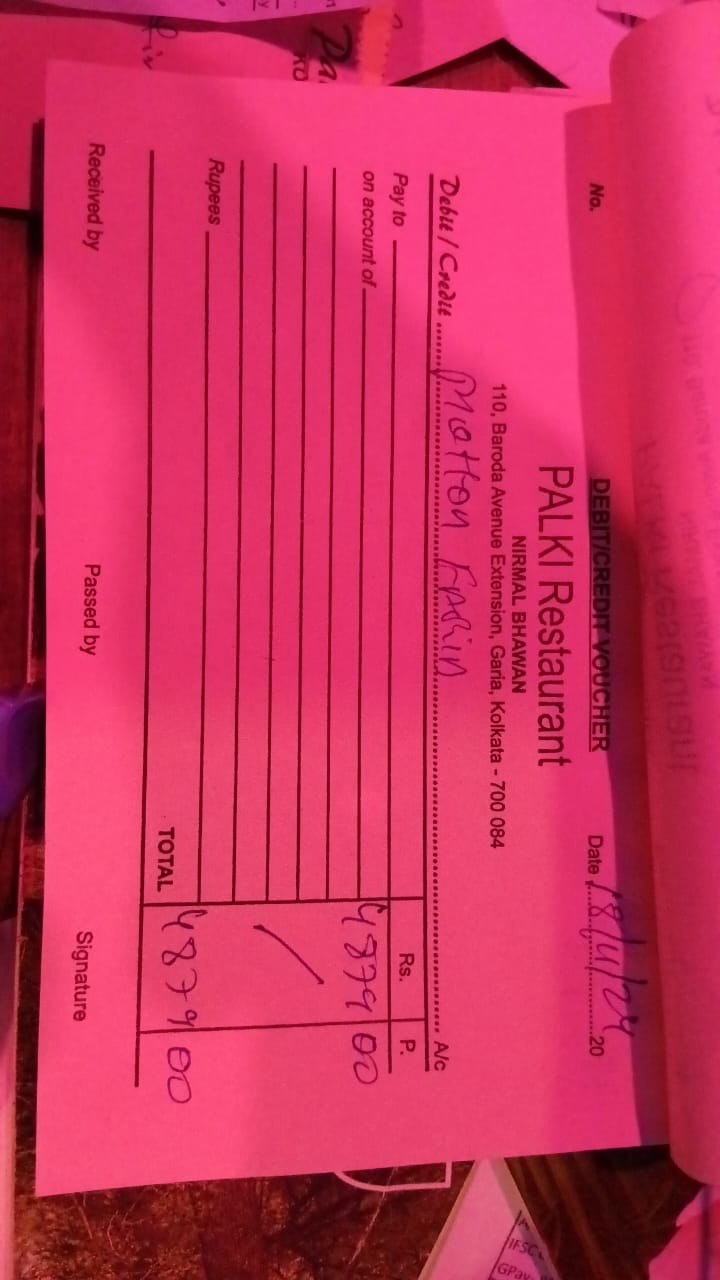 No.
DEBIT/CREDIT VOUCHER
Date 18/11/24 20
PALKI Restaurant
NIRMAL BHAWAN
110, Baroda Avenue Extension, Garia, Kolkata - 700 084
Debit / Credit Motton A/c
Pay to
Rs. P.
on account of 4879 00
Rupees
TOTAL 4879 00
Received by Passed by Signature
IFSC
GPay